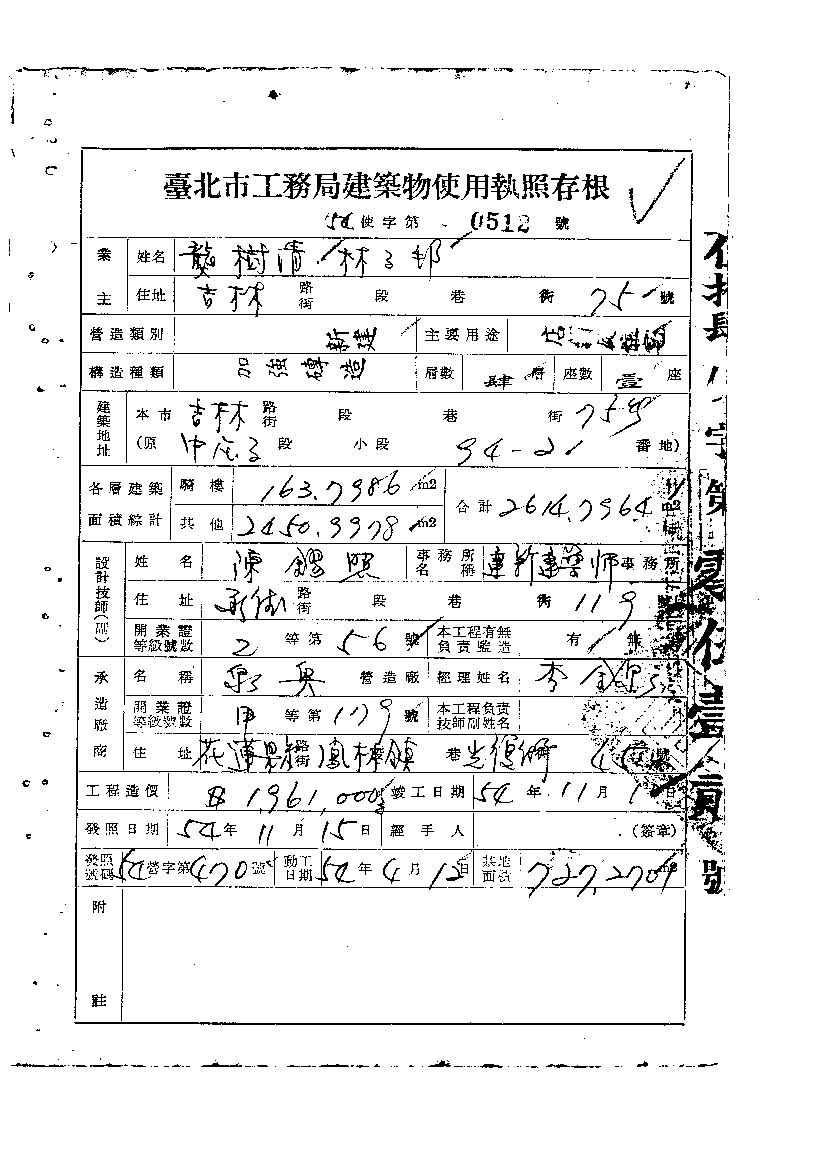 臺北市工務局建築物使用執照存根
54使字第 0512 號
業主 姓名 龔樹清 林子邦
住址 吉林 路街 段 巷 街 75 號
營造類別 新建 主要用途 店
構造種類 加強磚造 層數 肆層 座數 壹座
建築地址 本市 吉林 路街 段 巷 街 75號
(原 中庄子 段 小段 94-21 番地)
各層建築面積綜計 騎樓 163.7986 m2 合計 2614.7964
其他 2450.9978 m2
設計技師(副) 姓名 陳 照 事務所名稱 建新建築師事務所
住址 路街 段 巷 街 119
開業證等級號數 2 等第 56 號 本工程有無負責監造 有 無
承造廠商 名稱 營造廠 經理姓名 李
開業證等級號數 甲 等第 179 號 本工程負責技師副姓名
住址 花蓮縣 路街 鳳林鎮 巷 光復街 號
工程造價 1,961,000 竣工日期 54年11月1日
發照日期 54年11月15日 經手人 (簽章)
發照號碼 54營字第470號 動工日期 54年4月12日 基地面積 727.2709 m2
附註
字第零伍壹貳號